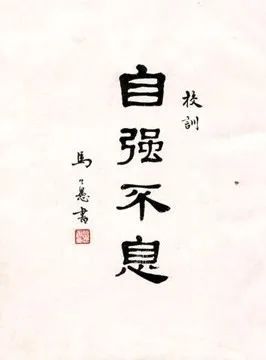 校訓
自强不息
馬公愚書